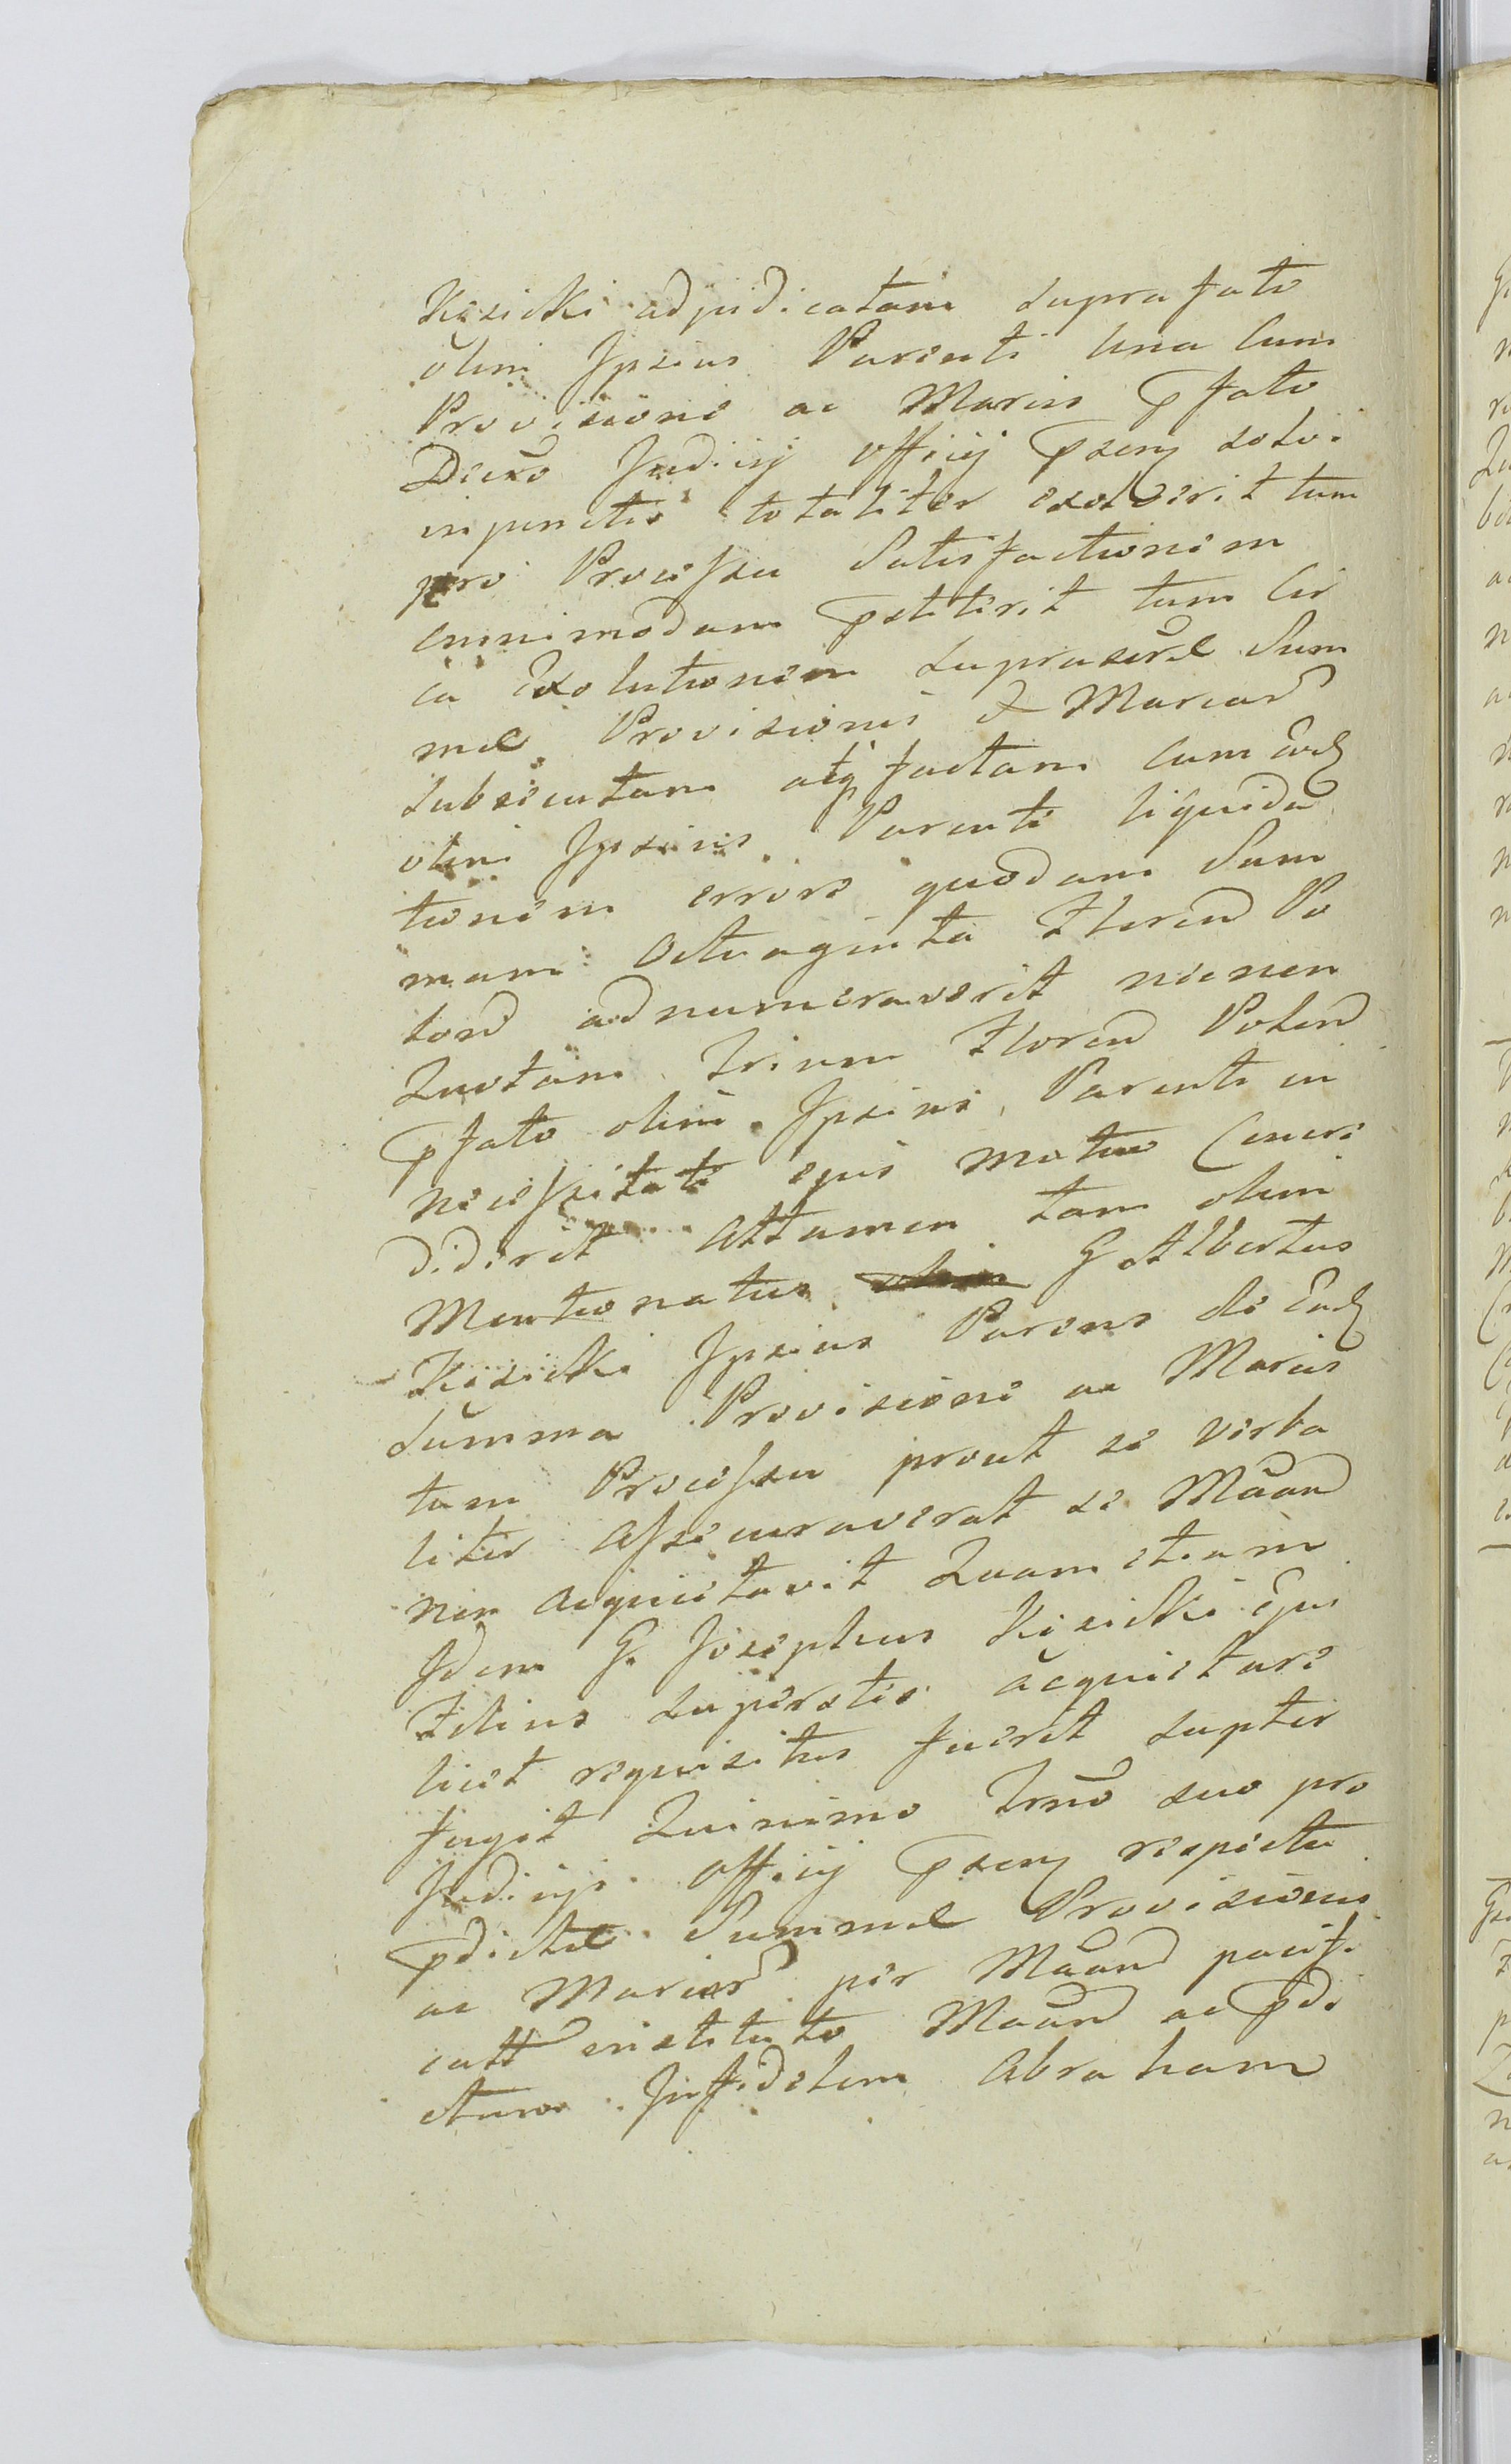 Kisicki adjudicatam supra fato
olim Ipsius Parenti una cum
Provisione ac Marcis pfato
Decro Judicij Officij pseng solvi
injunctis totaliter exolverit tum
pro Processu Satisfactionem
omnimodam petiterit tum Cir
ca Exolutionem suprascrae Sum
mae Provisionis et Marcar
subsecutam atq factam cum Eod
olim Ipsius Parenti liquida
tionem errore quodam Sum
mam Octuaginta Floren Po
lon adnumeraverit nec non
Quotam Trium Floren Polon
pfato olim Ipsius Parenti in
necessitate ejus mutuo Conere
diderit Attamen tam olim
Mentionatus G Albertus
Kisicki Ipsius Parens de Eod
Summa Provisione ac Marcis
tum Processu prout se verba
liter assecuraverat se Maan
non acquietavit Quam etiam
Idem G. Josephus Kisicki Ejus
Filius superstes acquietare
licet requisitus fuerit supter
fugit Quinimo Trno suo pro
Judicijs Officij pseng respectu
pdictae Summae Provisionis
ac Marcar per Maan pacifi
catt instituto Maan ac pdi
ctum Infidelem Abraham